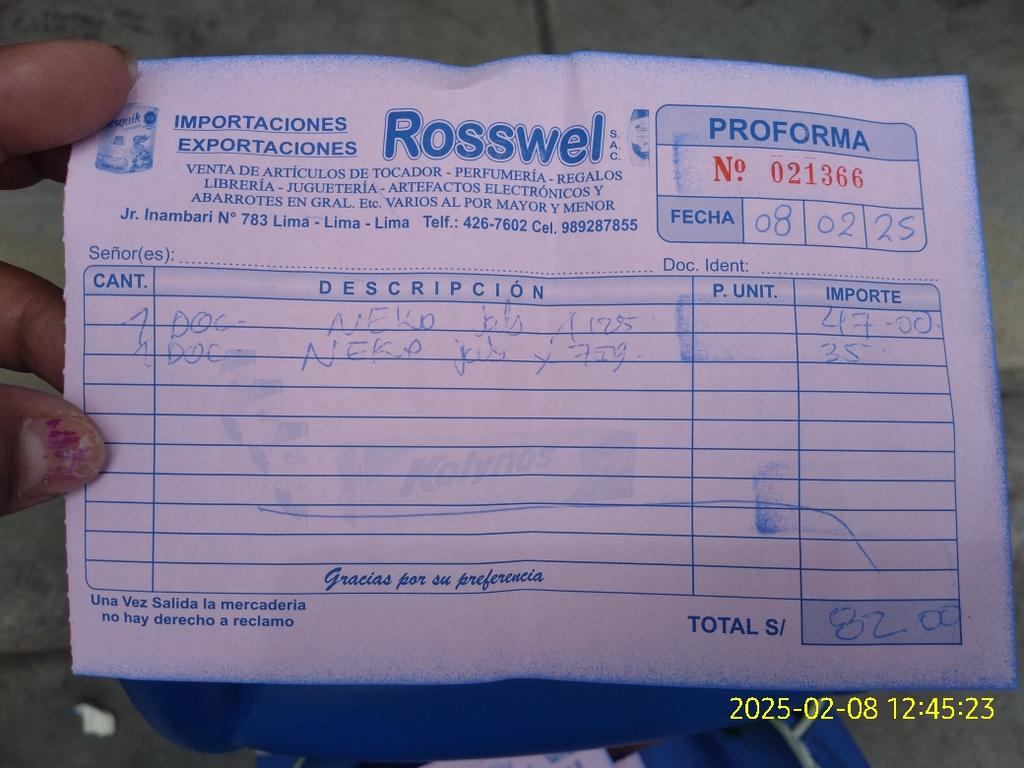 IMPORTACIONES
EXPORTACIONES
Rosswel S.A.C.
VENTA DE ARTÍCULOS DE TOCADOR - PERFUMERÍA - REGALOS
LIBRERÍA - JUGUETERÍA - ARTEFACTOS ELECTRÓNICOS Y
ABARROTES EN GRAL. Etc. VARIOS AL POR MAYOR Y MENOR
Jr. Inambari N° 783 Lima - Lima - Lima Telf.: 426-7602 Cel. 989287855
PROFORMA
Nº 021366
FECHA 08 02 25
Señor(es):
Doc. Ident:
CANT. DESCRIPCIÓN P. UNIT. IMPORTE
1 DOC- NEKO 125 47-00
1 DOC- NEKO 75g 35
Kolynos
Gracias por su preferencia
Una Vez Salida la mercaderia
no hay derecho a reclamo
TOTAL S/ 82.00
2025-02-08 12:45:23